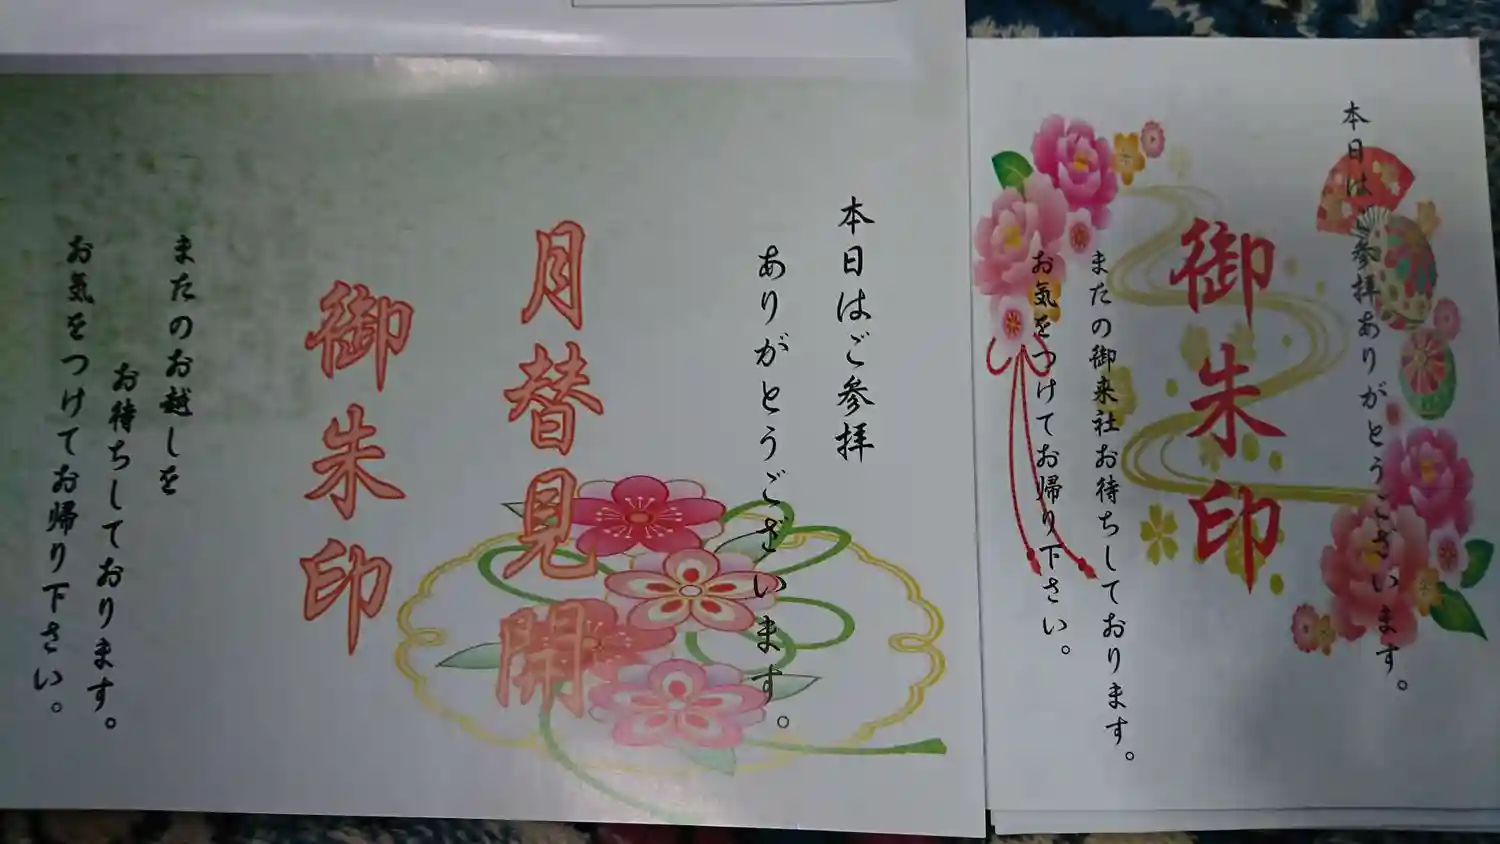 本日はご参拝
ありがとうございます。
月替見開
御朱印
またのお越しを
お待ちしております。
お気をつけてお帰り下さい。
本日はご参拝ありがとうございます。
御朱印
またの御来社お待ちしております。
お気をつけてお帰り下さい。